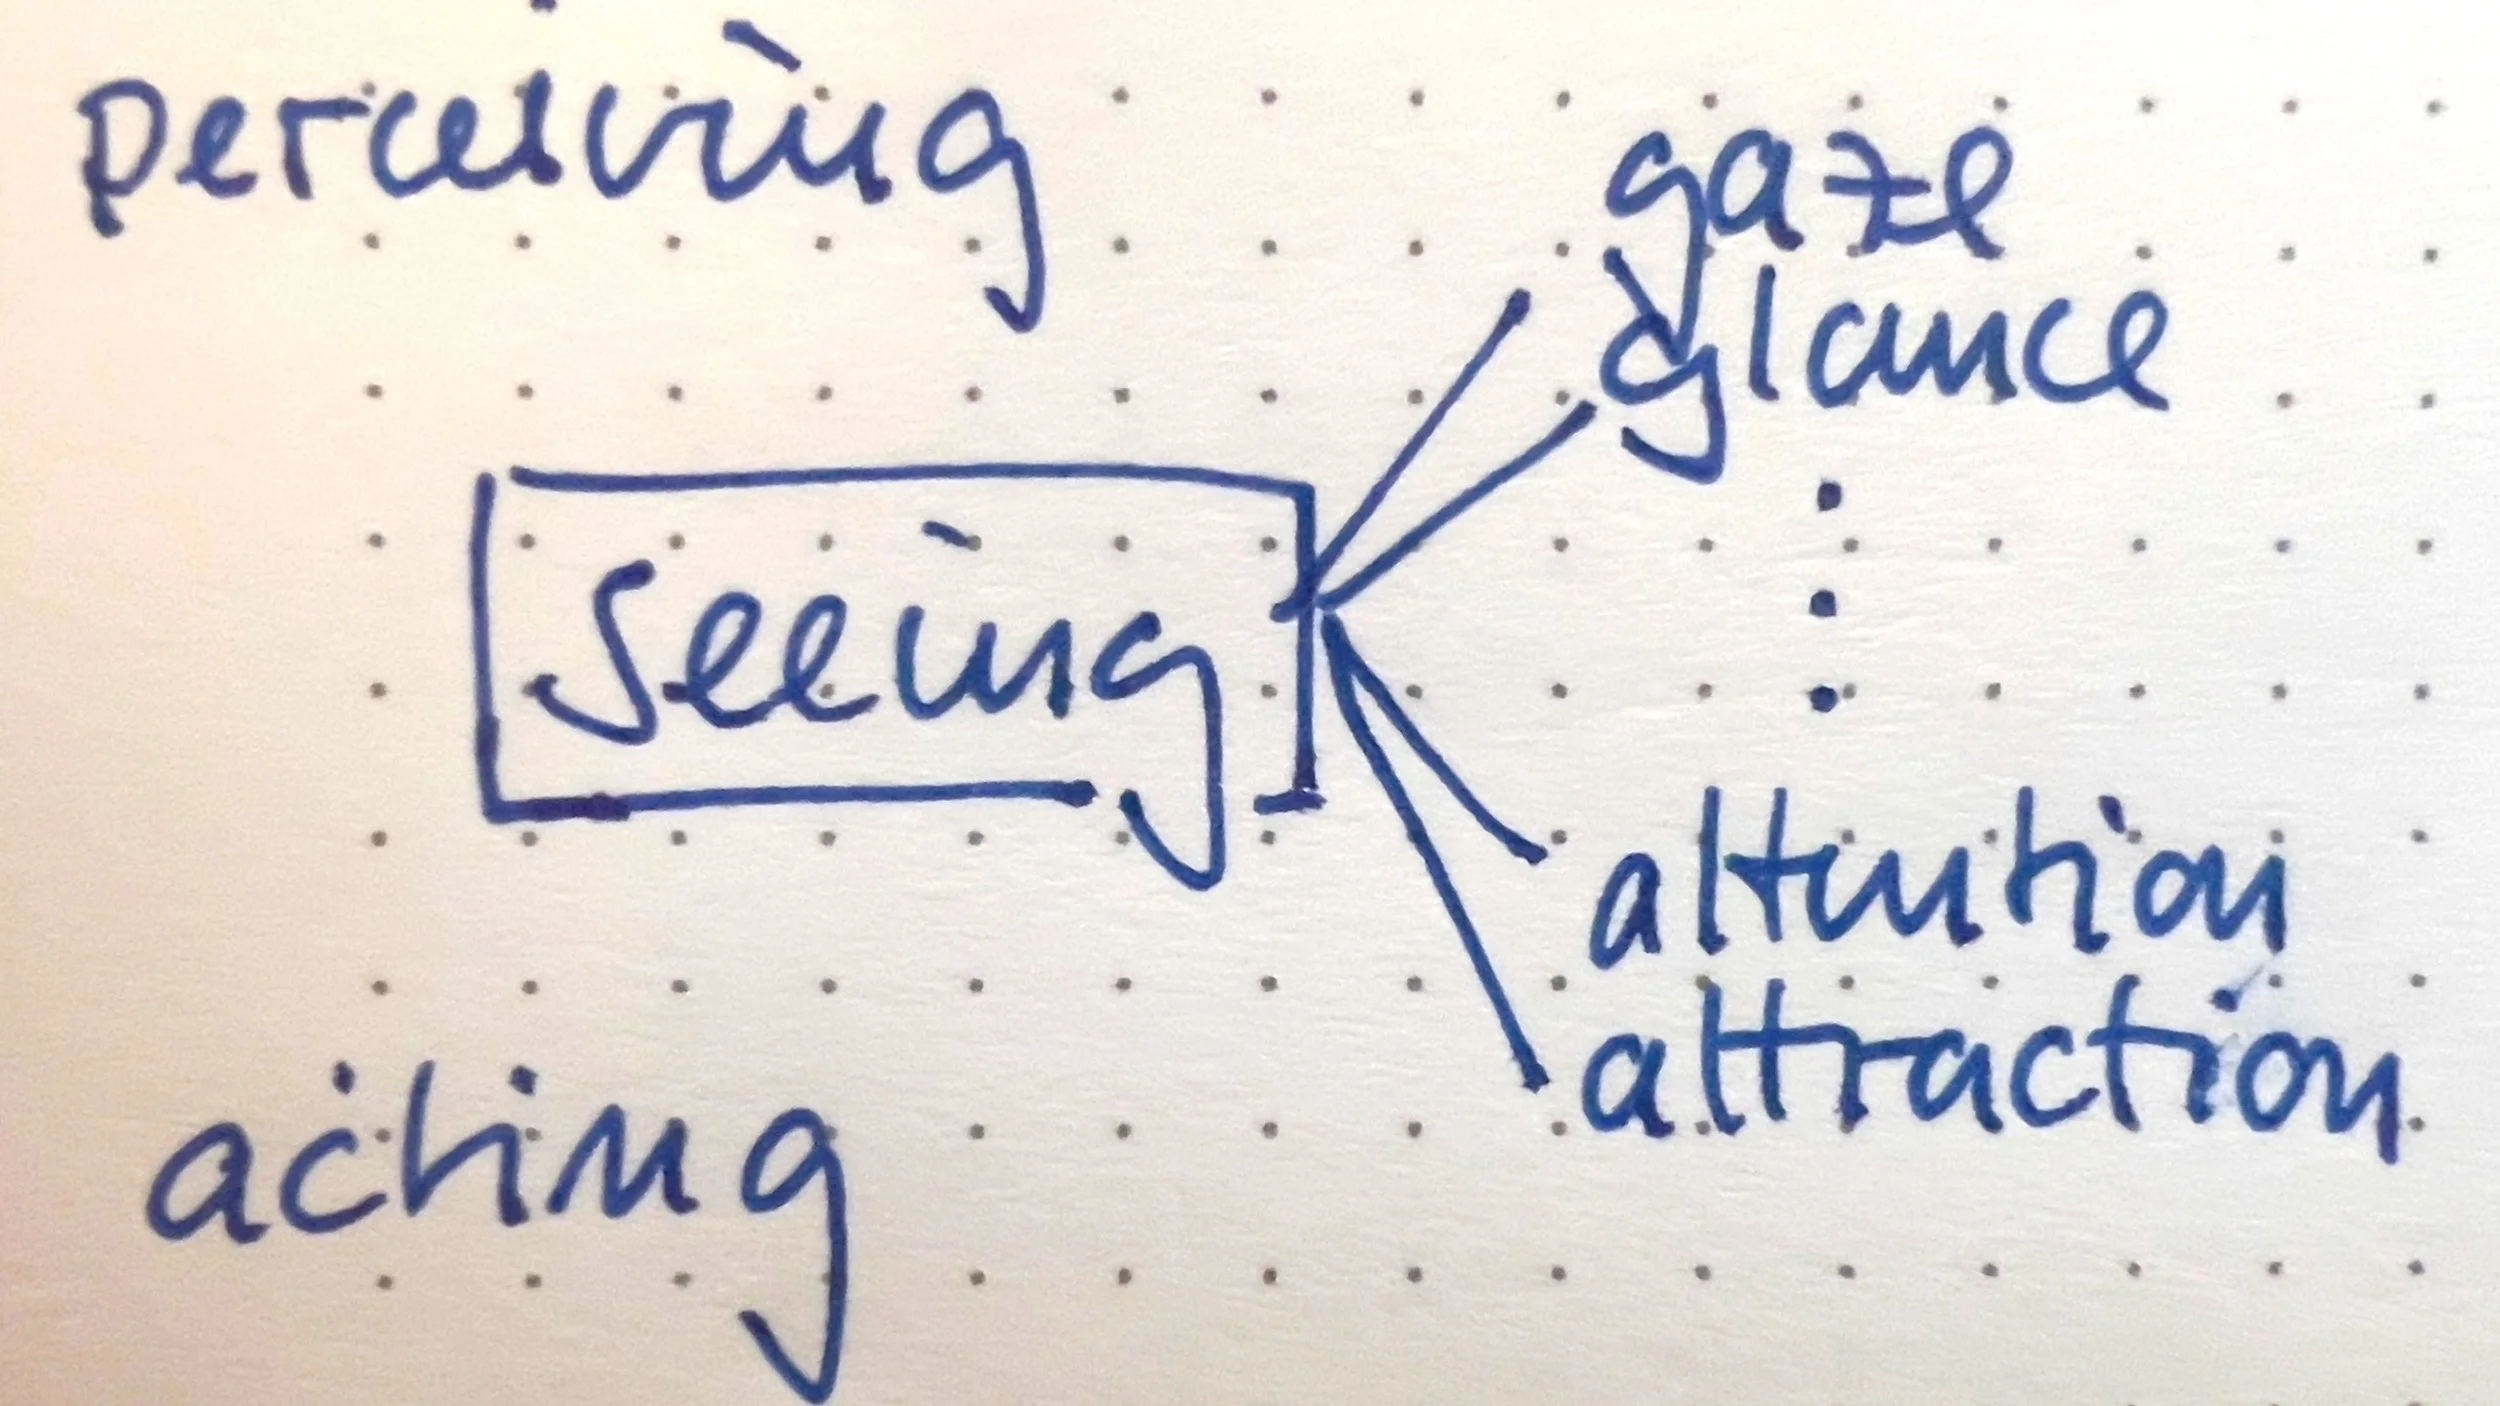 perceiving
gaze
glance
seeing
attention
attraction
acting